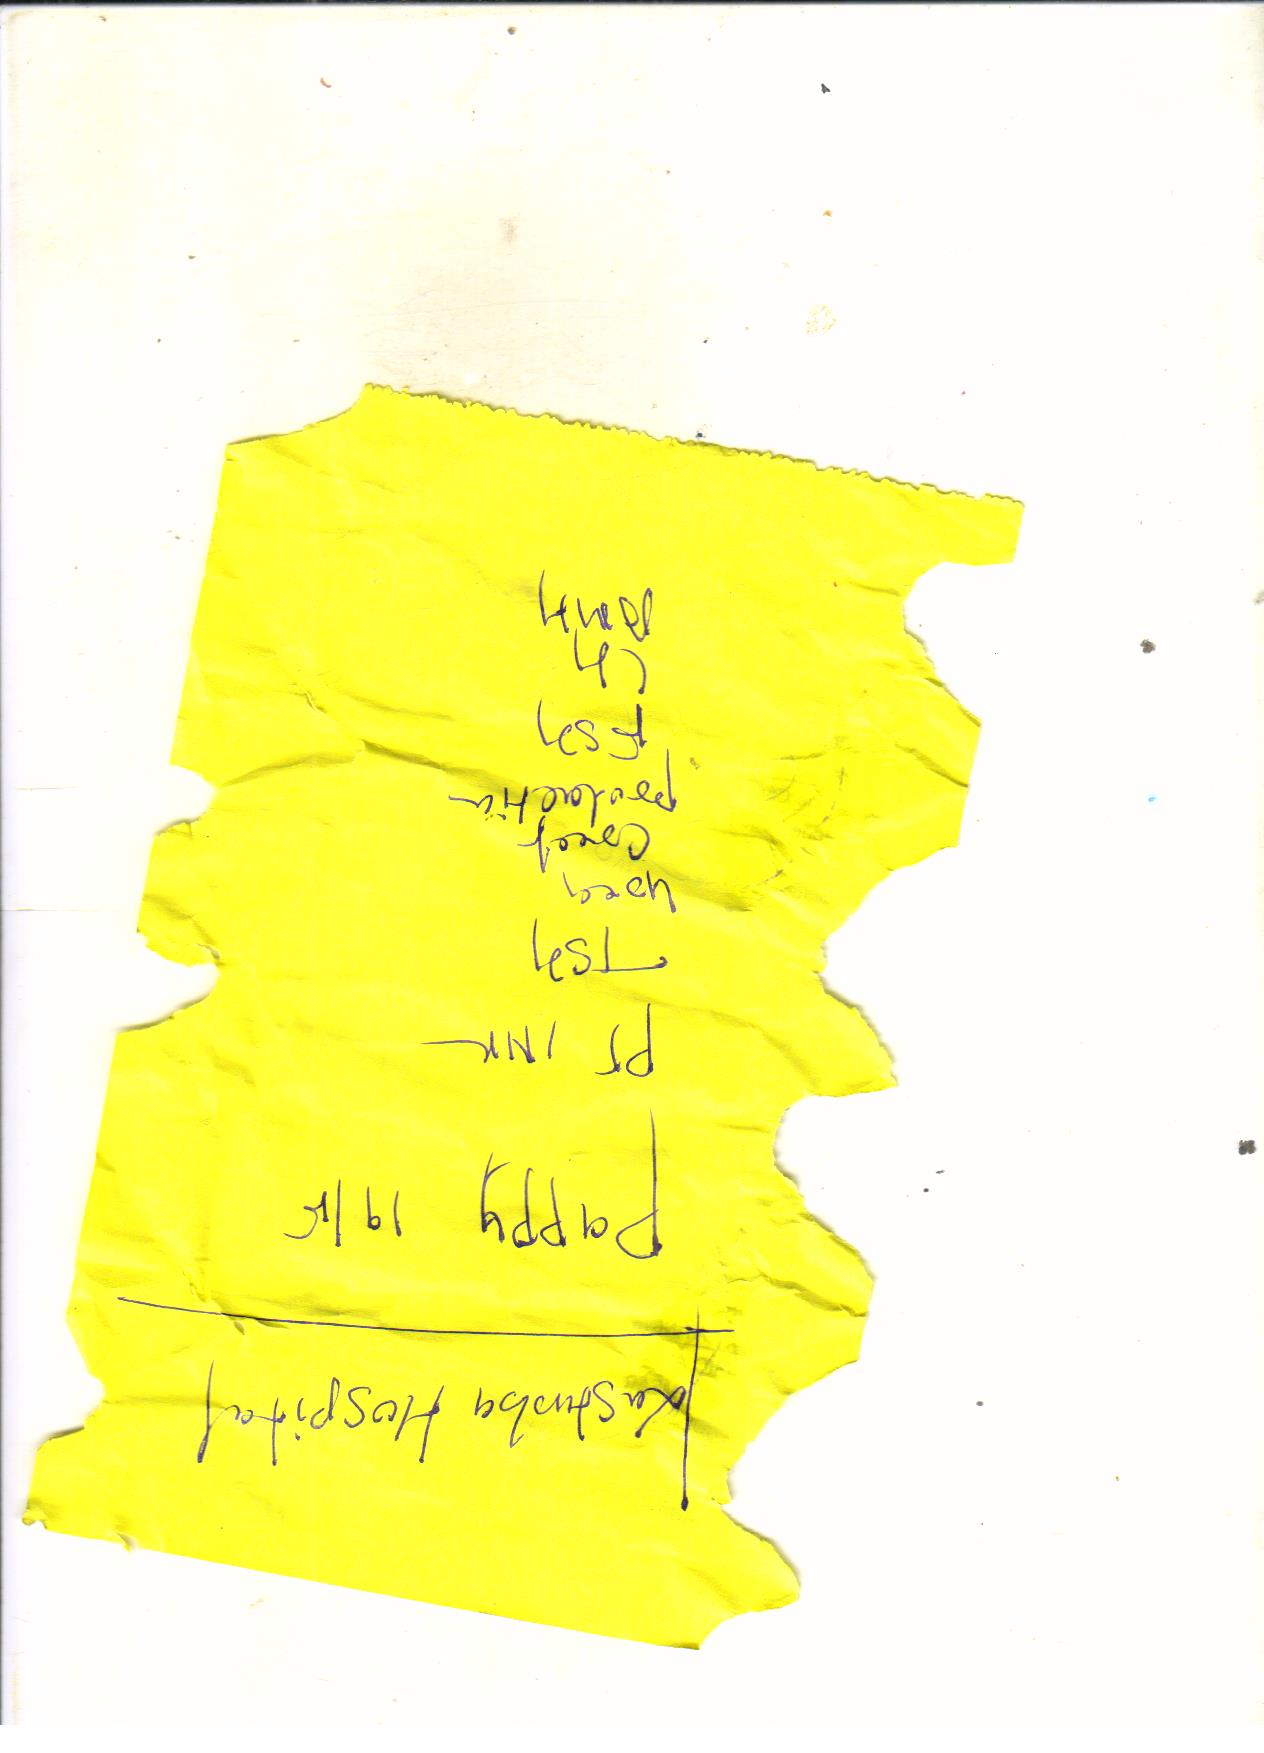 Kasturba Hospital
Pappy 19/F
PT INR
TSH
Urea
Creat
prolactin
FSH
LH
AMH